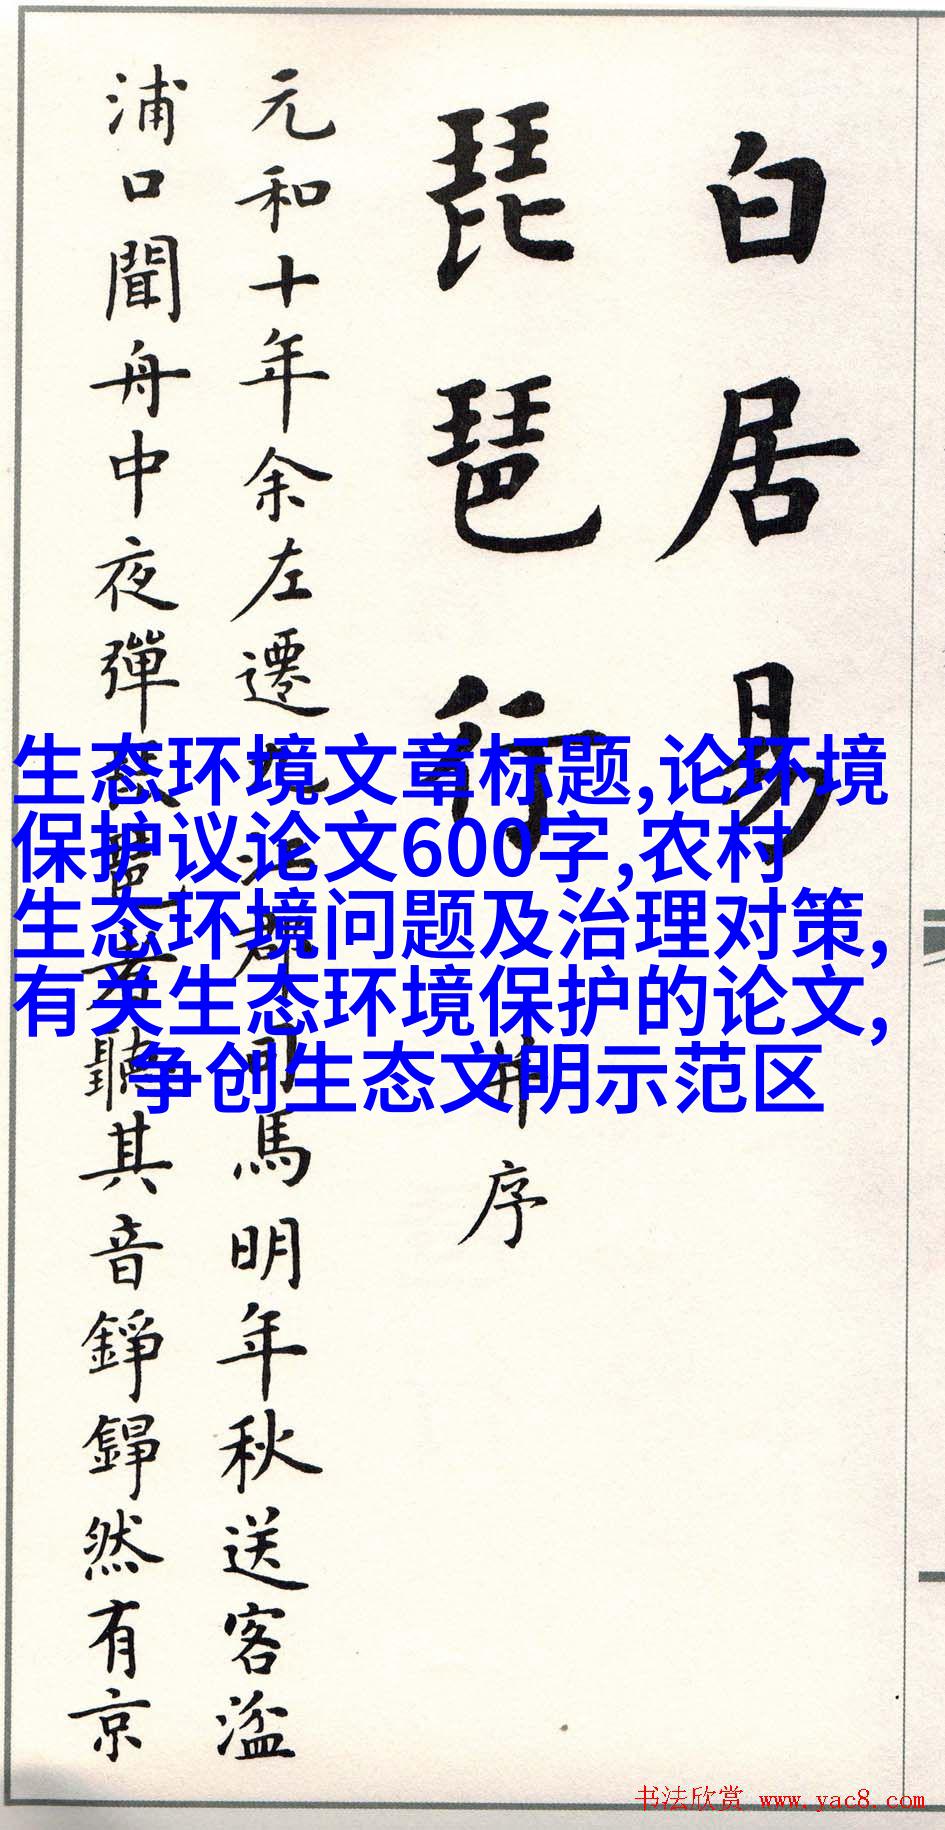 白居易
琵琶行 并序
元和十年余左遷九江郡司馬明年秋送客湓
浦口聞舟中夜彈琵琶者聽其音錚錚然有京
生态环境文章标题,论环境
保护议论文600字,农村
生态环境问题及治理对策,
有关生态环境保护的论文,
争创生态文明示范区
书法欣赏 www.yac8.com